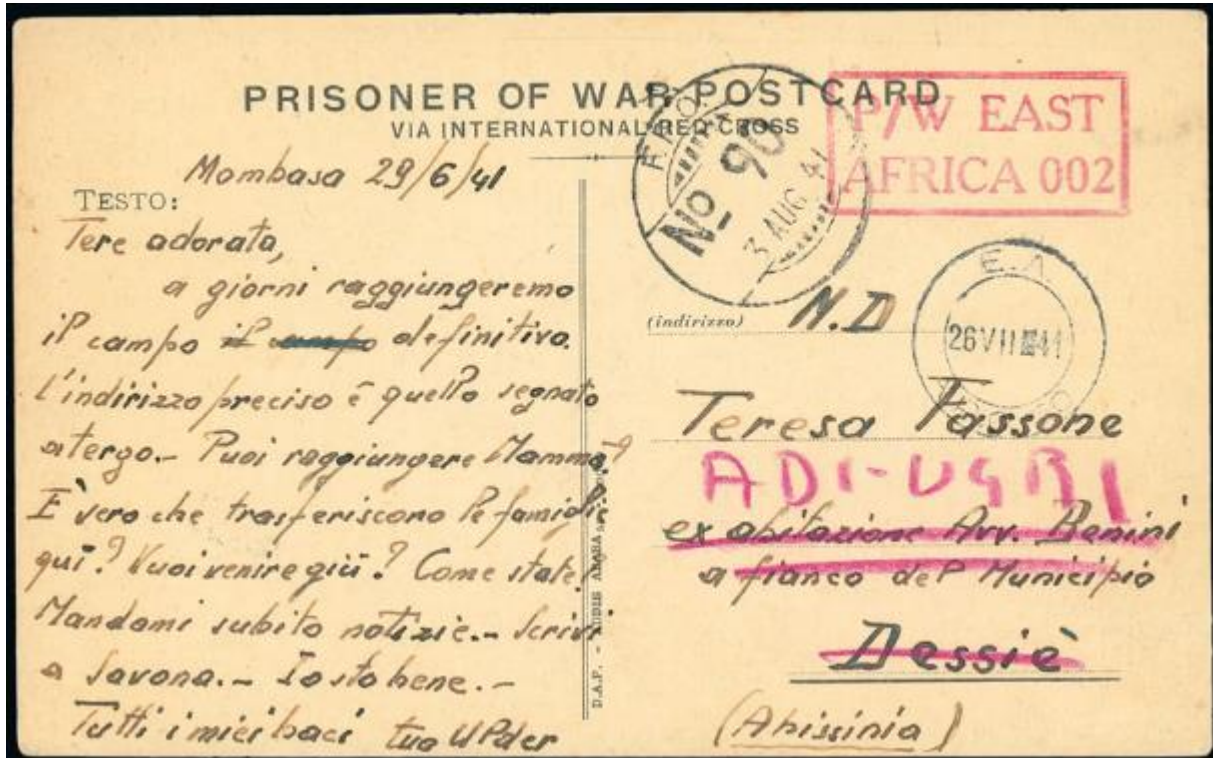 PRISONER OF WAR POSTCARD
VIA INTERNATIONAL RED CROSS
P/W EAST
AFRICA 002
F.P.O.
No 90
3 AUG 41
E.A
26VII41
Mombasa 29/6/41
TESTO:
Tere adorata,
a giorni raggiungeremo
il campo il campo definitivo.
l'indirizzo preciso è quello segnato
a tergo.- Puoi raggiungere Mamma?
È vero che trasferiscono le famiglie
quì? Vuoi venire giù? Come state?
Mandami subito notizie.- Scrivi
a Savona.- Io sto bene.-
Tutti i miei baci tuo
D.A.P. - RODIS ABABA
(indirizzo) N.D
Teresa Fassone
ADI-UGRI
ex abitazione Avv. Benini
a fianco del Municipio
Dessiè
(Abissinia)